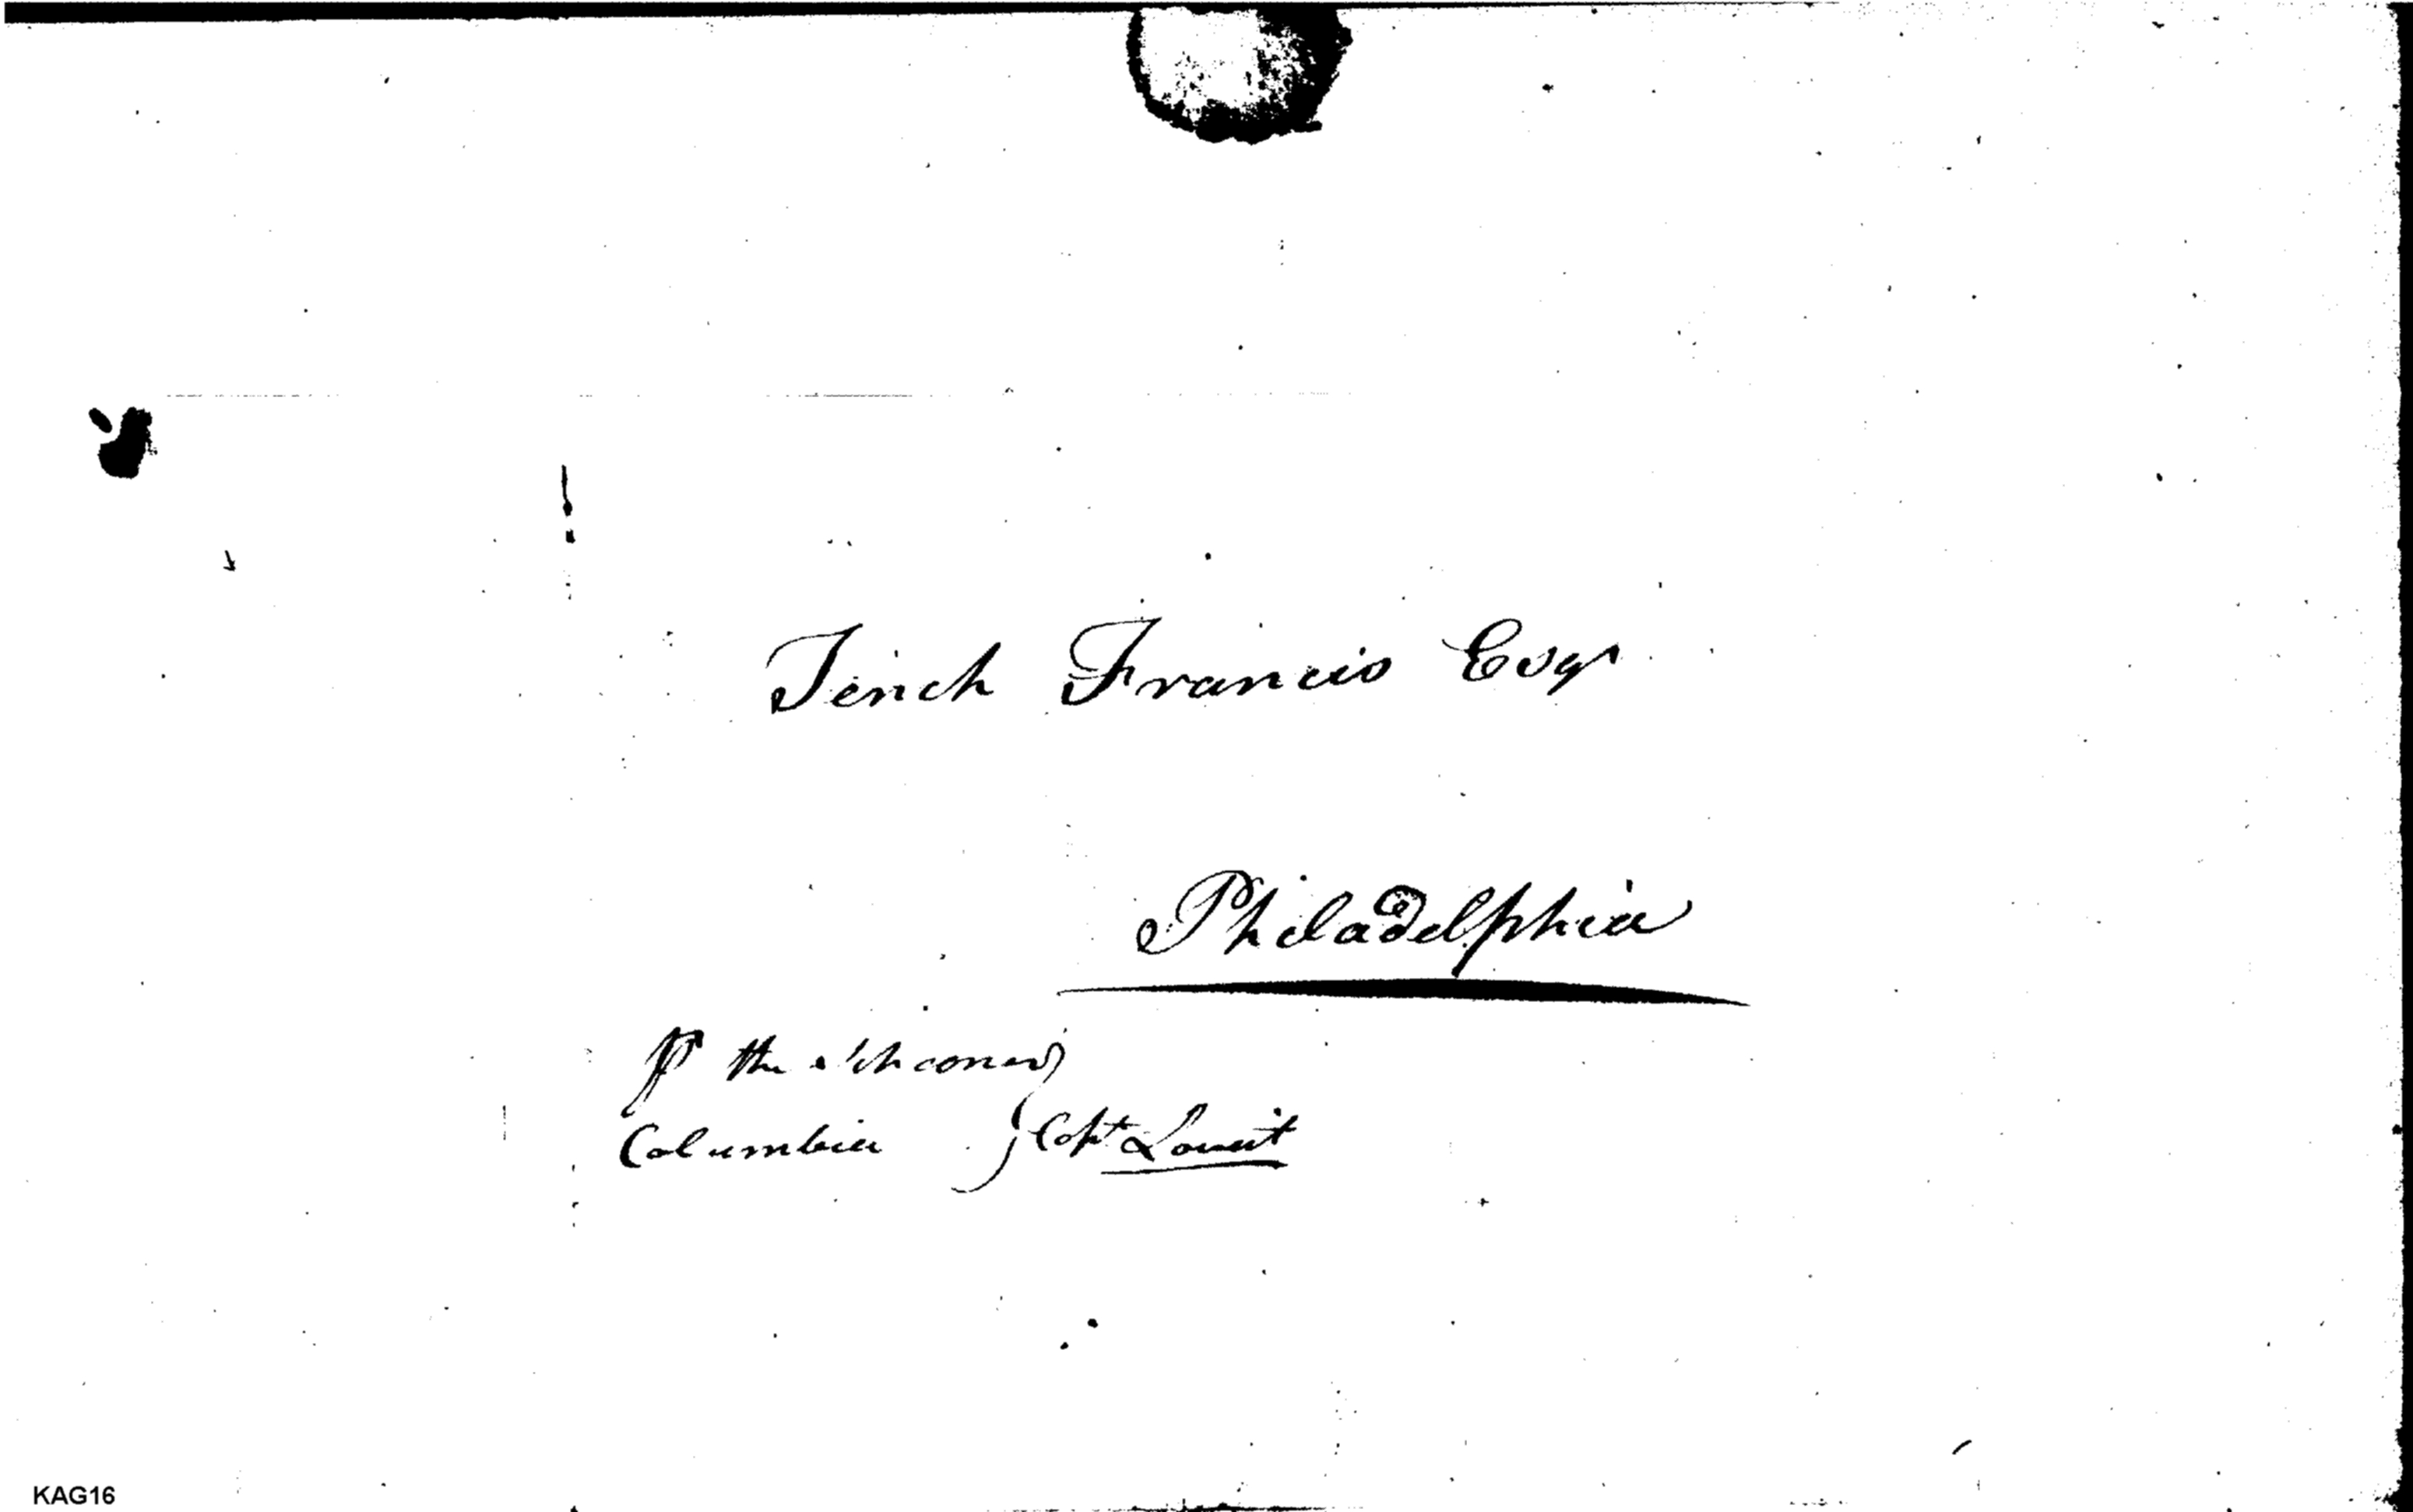 Tench Francis Esqr
Philadelphia
P the Schooner
Columbia } Capt
KAG16